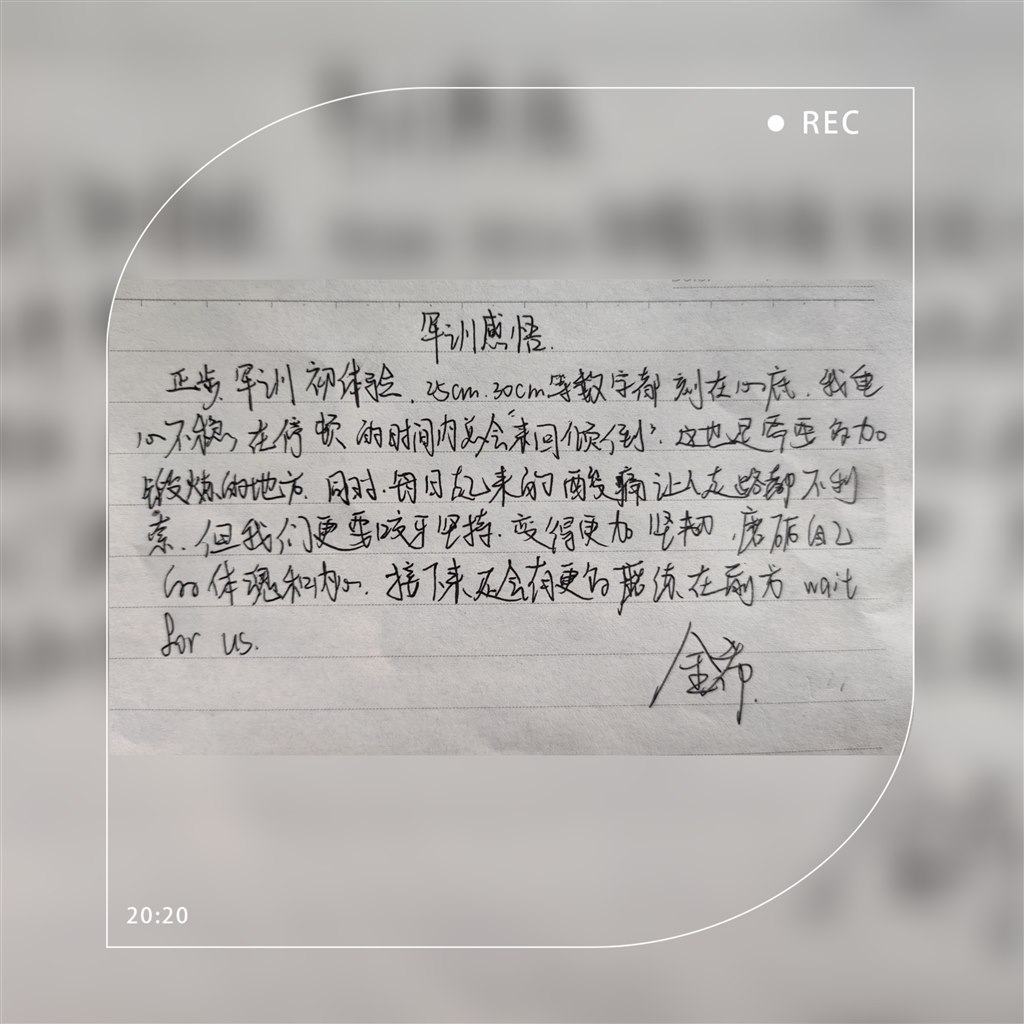 REC
军训感悟.
正步军训初体验,25cm.30cm等数字都刻在心底.我重
心不稳,在停顿的时间内总会“来回倾倒”.这也是需要多加
锻炼的地方.同时.每日起来的酸痛让人走路都不利
索.但我们更要咬牙坚持.变得更加坚韧,磨砺自己
的体魂和内心.接下来还会有更多磨练在前方wait
for us.
金希.
20:20